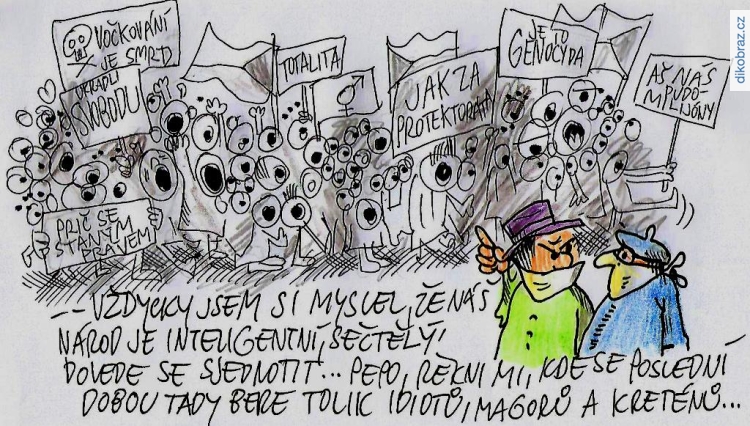 dikobraz.cz
VOČKOVÁNÍ
JE SMRD
UKRADLI
SVOBODU
TOTALITA
JAK ZA
PROTEKTORÁTU
JE TO
GENOCYDA
AŠ NÁS
PUDO-
MILIJÓNY
PRIČ SE
STANÍM
PRÁVEM
-- VŽDYCKY JSEM SI MYSLEL, ŽE NÁŠ
NÁROD JE INTELIGENTNÍ, SEČTĚLÝ,
DOVEDE SE SJEDNOTIT... PEPO, ŘEKNI MI, KDE SE POSLEDNÍ
DOBOU TADY BERE TOLIK IDIOTŮ, MAGORŮ A KRETÉNŮ...